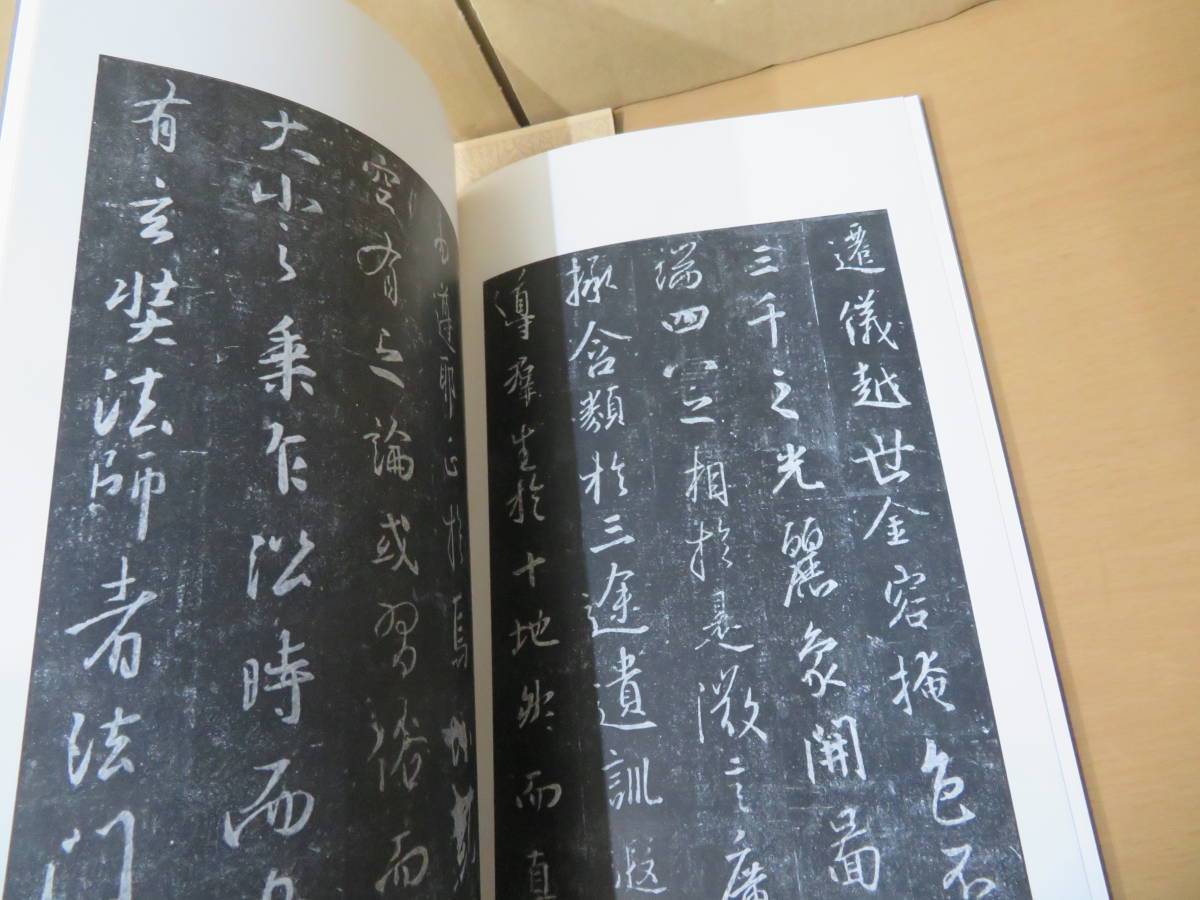 遷儀越世金容掩色不
三千之光麗象開圖
端四八之相於是微言廣
拯含類於三途遺訓遐
導群生於十地然而真
易遵耶正於焉紛糾
空有之論或習俗而
大小之乘乍沿時而
有玄奘法師者法門